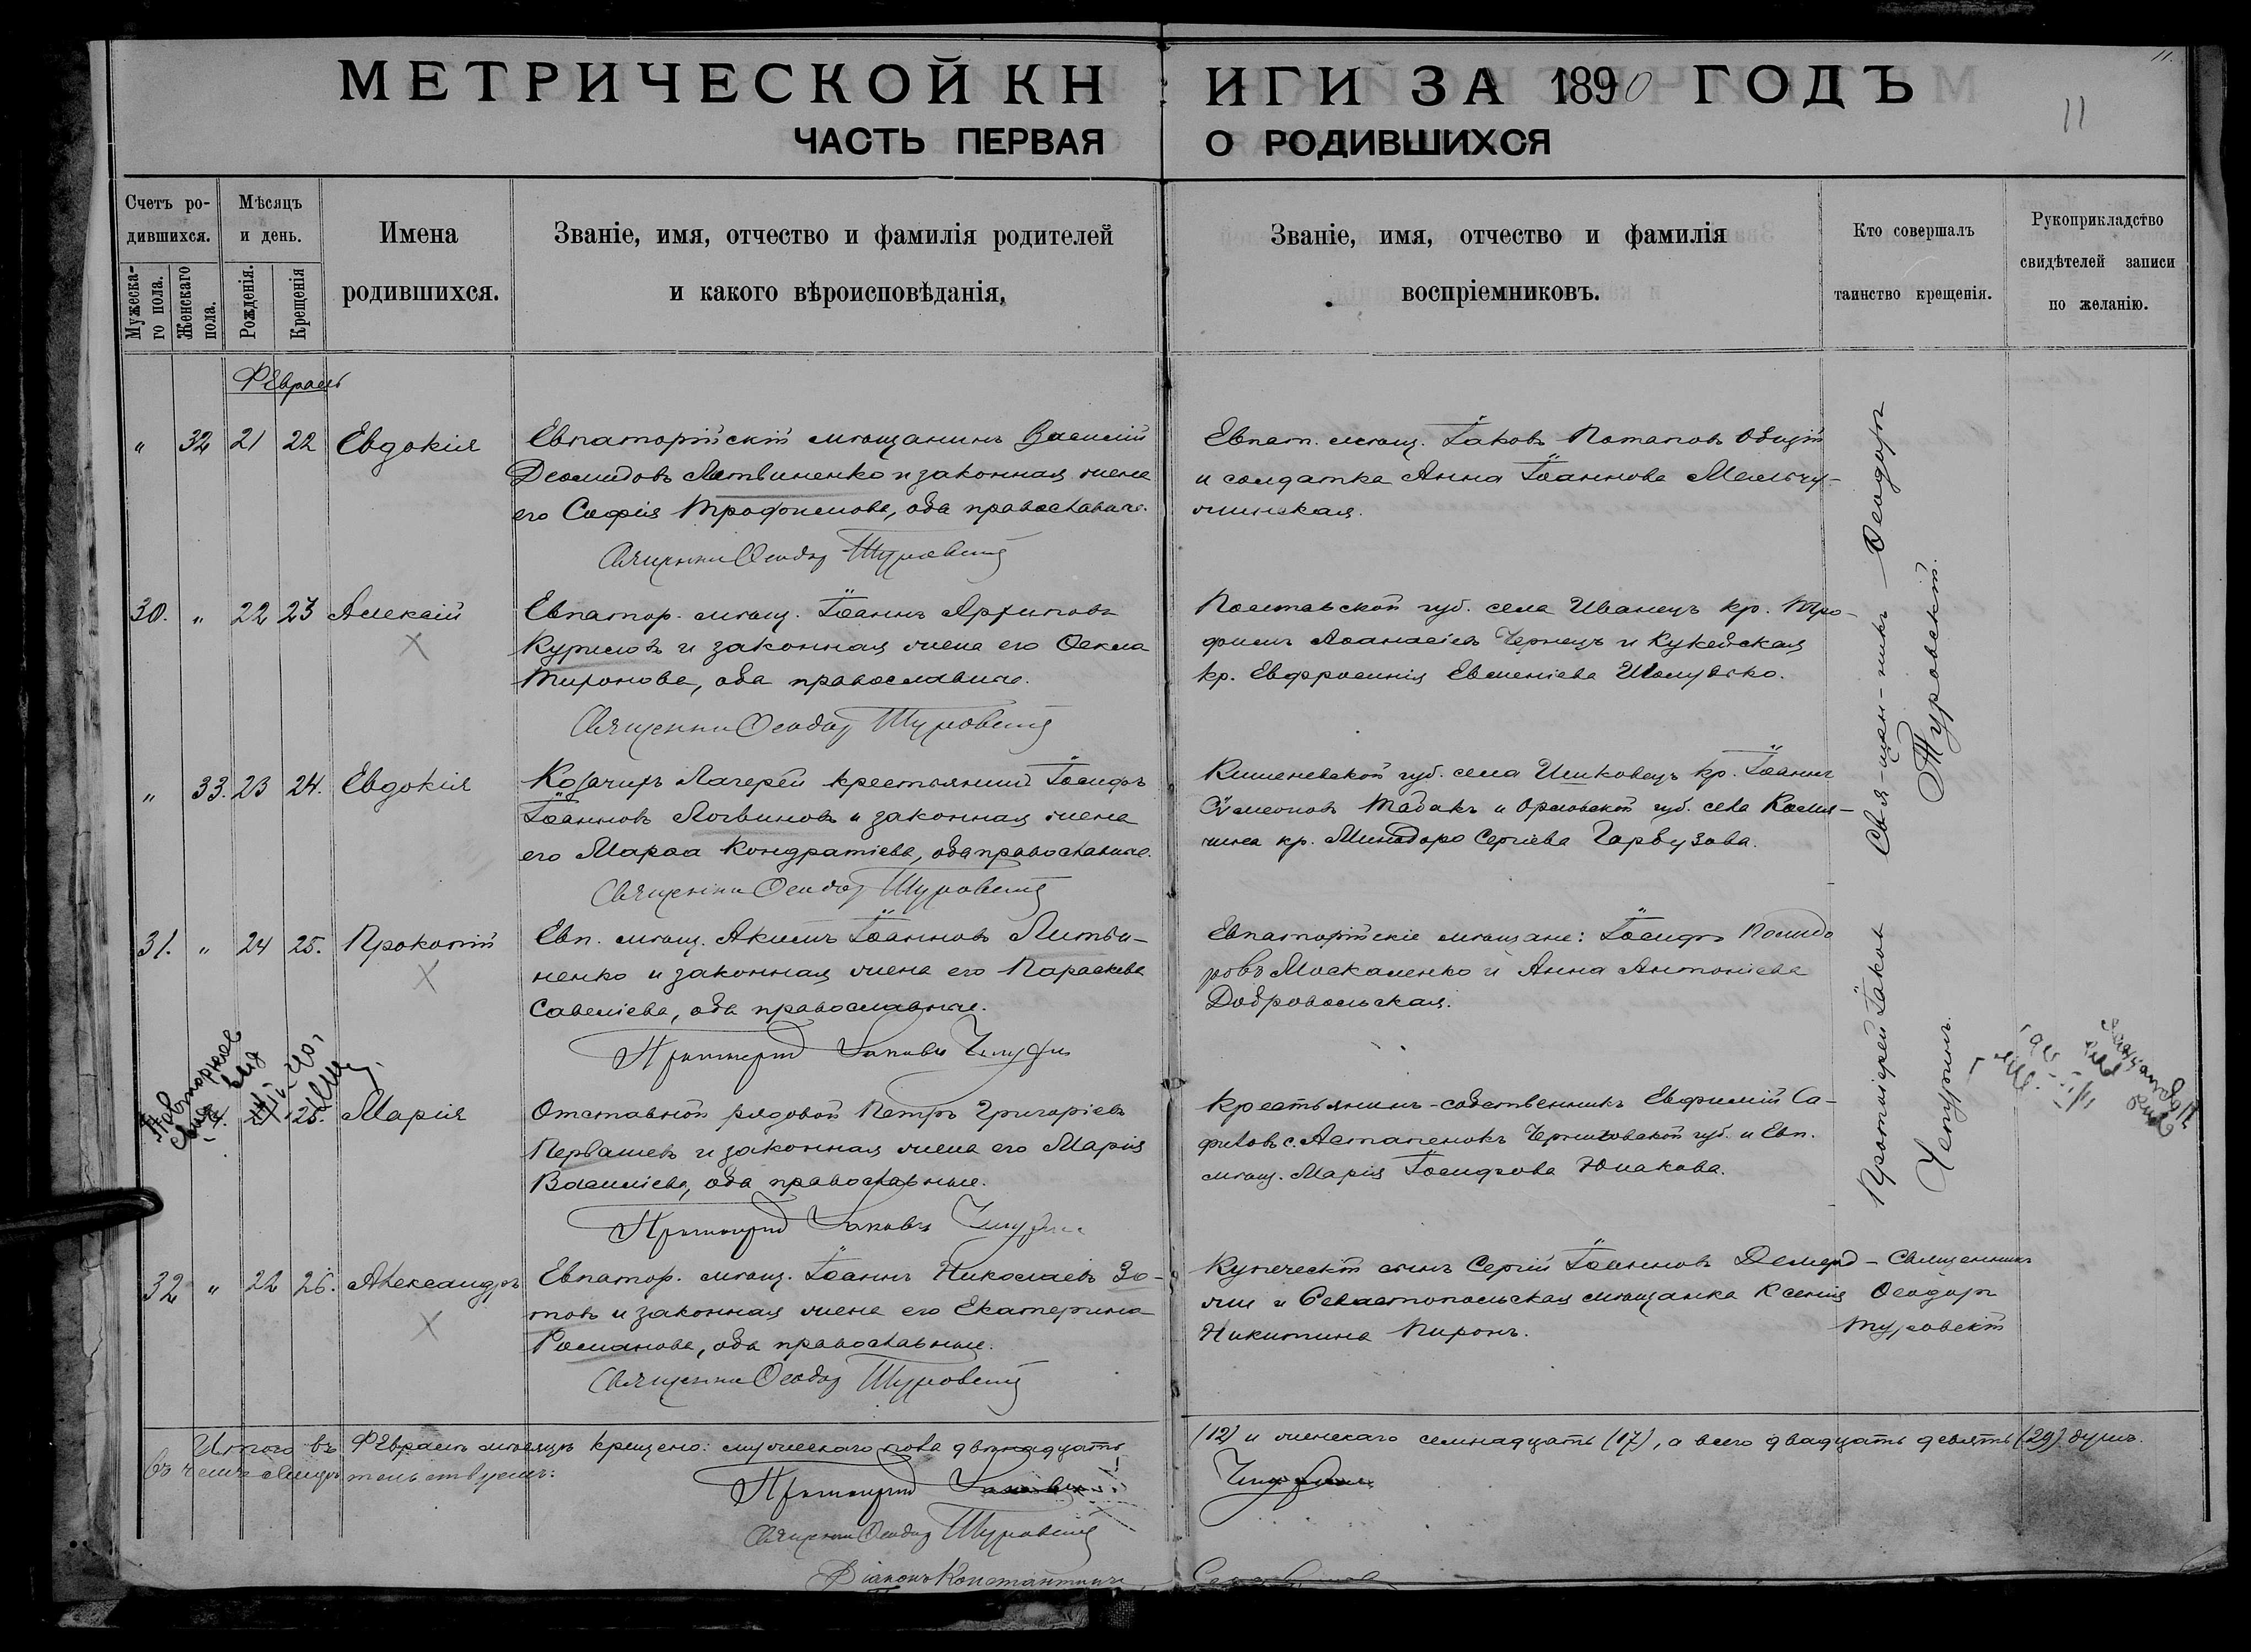 11.
МЕТРИЧЕСКОЙ КНИГИ ЗА 1890 ГОДЪ
11
ЧАСТЬ ПЕРВАЯ О РОДИВШИХСЯ
Счетъ ро-
дившихся.
Мужеска-
го пола.
Женскаго
пола.
Мѣсяцъ
и день.
Рожденія.
Крещенія
Имена
родившихся.
Званіе, имя, отчество и фамилія родителей
и какого вѣроисповѣданія,
Званіе, имя, отчество и фамилія
воспріемниковъ.
Кто совершалъ
таинство крещенія.
Рукоприкладство
свидѣтелей записи
по желанію.
Февраль
" 32 21 22 Евдокія
Евпаторійскій мѣщанинъ Василій
Деомидовъ Литвиненко и законная жена
его Софія Трофимова, оба православные.
Священникъ Ѳеодоръ Туровскій
Евпат. мѣщ. Іаковъ Потаповъ
и солдатка Анна Іоаннова
30. " 22 23 Алексій
Евпатор. мѣщ. Іоаннъ Архиповъ
Куриловъ и законная жена его Ѳекла
Миронова, оба православные.
Священникъ Ѳеодоръ Туровскій
Полтавской губ. села Иванецъ кр. Тро-
фимъ Аѳанасіевъ Чернецъ и
кр. Евфросинія Евменіева
" 33. 23 24. Евдокія
Козачихъ Лагерей крестьянинъ Іосифъ
Іоанновъ Логвиновъ и законная жена
его Марѳа Кондратіева, оба православные.
Священникъ Ѳеодоръ Туровскій
Кишеневской губ. села кр. Іоаннъ
Сѵмеоновъ Табакъ и Орловской губ. села
кр. Минодора Сергіева Гарбузова.
Свя-щен-никъ Ѳеодоръ
Туровскій.
31. " 24 25. Прокопій
Евп. мѣщ. Акимъ Іоанновъ Литви-
ненко и законная жена его Параскева
Савеліева, оба православные.
Протоіерей Іаковъ Чепуринъ
Евпаторійскіе мѣщане: Іосифъ Полидо
ровъ Москаленко и Анна Антоніева
Добровольская.
" 25. Марія
Отставной рядовой Петръ Григоріевъ
Первашевъ и законная жена его Марія
Василіева, оба православные.
Протоіерей Іаковъ Чепуринъ
Крестьянинъ-собственникъ Евфимій Са-
фиковъ с. Астапенокъ Черниговской губ. и Евп.
мѣщ. Марія Іосифова Юшакова.
Протоіерей Іаковъ
Чепуринъ.
32 " 22 26. Александръ
Евпатор. мѣщ. Іоаннъ Николаевъ Зо-
товъ и законная жена его Екатерина
Романова, оба православные.
Священникъ Ѳеодоръ Туровскій
Купеческій сынъ Сергій Іоанновъ Демерд-
жи и Севастопольская мѣщанка Ксенія
Никитина Пиронъ.
Священникъ
Ѳеодоръ
Туровскій
Итого въ Февралѣ мѣсяцѣ крещено: мужескаго пола двѣнадцать (12) и женскаго семнадцать (17), а всего двадцать девять (29) душъ.
Въ чемъ свидѣтельствуемъ:
Протоіерей Іаковъ Чепуринъ
Священникъ Ѳеодоръ Туровскій
Діаконъ Константинъ